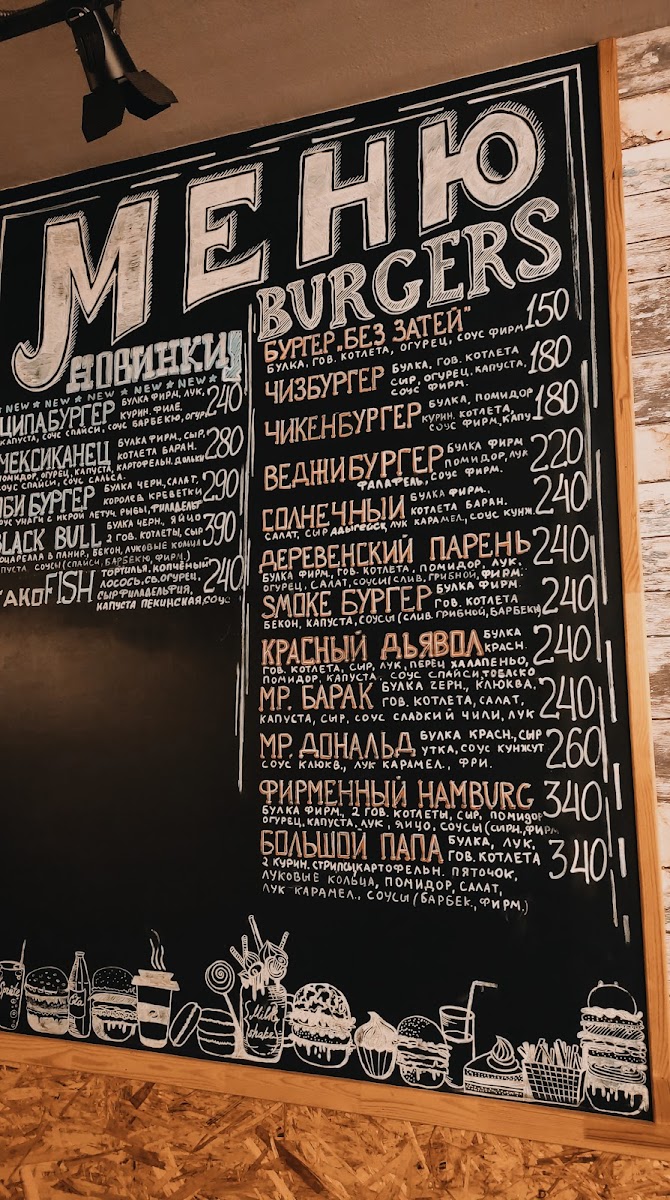 МЕНЮ
НОВИНКИ!
NEW ★ NEW ★ NEW ★ NEW ★ NEW ★
ЦИПАБУРГЕР БУЛКА ФИРМ, ЛУК, 240
КУРИН. ФИЛЕ,
КАПУСТА, СОУС СПАЙСИ, СОУС БАРБЕКЮ, ОГУРЕЦ
МЕКСИКАНЕЦ БУЛКА ФИРМ, СЫР, 280
КОТЛЕТА БАРАН.
ПОМИДОР, ОГУРЕЦ, КАПУСТА, КАРТОФЕЛЬН. ДОЛЬКИ
СОУС СПАЙСИ, СОУС САЛЬСА.
БУРГЕР БУЛКА ЧЕРН, САЛАТ, 290
КОРОЛЕВ. КРЕВЕТКИ
УНАГИ С ИКРОЙ ЛЕТУЧ. РЫБЫ, ФИЛАДЕЛЬФ
BLACK BULL БУЛКА ЧЕРН., ЯЙЦО 390
2 ГОВ. КОТЛЕТЫ, СЫР
МОЦАРЕЛЛА В ПАНИР, БЕКОН, ЛУКОВЫЕ КОЛЬЦА
КАПУСТА СОУСЫ (СПАЙСИ, БАРБЕКЮ, ФИРМ.)
ТАКОFISH ТОРТИЛЬЯ, КОПЧЁНЫЙ 240
ЛОСОСЬ, СВ. ОГУРЕЦ,
СЫР ФИЛАДЕЛЬФИЯ,
КАПУСТА ПЕКИНСКАЯ, СОУС
BURGERS
БУРГЕР „БЕЗ ЗАТЕЙ" 150
БУЛКА, ГОВ. КОТЛЕТА, ОГУРЕЦ, СОУС ФИРМ
ЧИЗБУРГЕР БУЛКА, ГОВ. КОТЛЕТА 180
СЫР, ОГУРЕЦ, КАПУСТА,
СОУС ФИРМ.
ЧИКЕНБУРГЕР БУЛКА, ПОМИДОР 180
КУРИН. КОТЛЕТА,
СОУС ФИРМ, КАПУ
ВЕДЖИБУРГЕР БУЛКА ФИРМ 220
ПОМИДОР, ЛУК
ФАЛАФЕЛЬ, СОУС ФИРМ.
СОЛНЕЧНЫЙ БУЛКА ФИРМ., 240
КОТЛЕТА БАРАН.
САЛАТ, СЫР АДЫГЕЙСК, ЛУК КАРАМЕЛ, СОУС КУНЖ.
ДЕРЕВЕНСКИЙ ПАРЕНЬ 240
БУЛКА ФИРМ, ГОВ. КОТЛЕТА, ПОМИДОР, ЛУК,
ОГУРЕЦ, САЛАТ, СОУСЫ (СЛИВ. ГРИБНОЙ, ФИРМ.
SMOKE БУРГЕР БУЛКА ФИРМ. 240
ГОВ. КОТЛЕТА
БЕКОН, КАПУСТА, СОУСЫ (СЛИВ. ГРИБНОЙ, БАРБЕКЮ)
КРАСНЫЙ ДЬЯВОЛ БУЛКА 240
КРАСН.
ГОВ. КОТЛЕТА, СЫР, ЛУК, ПЕРЕЦ ХАЛАПЕНЬО,
ПОМИДОР, КАПУСТА, СОУС СПАЙСИ, ТОБАСКО
МР. БАРАК БУЛКА ZЕРН., КЛЮКВА, 240
ГОВ. КОТЛЕТА, САЛАТ,
КАПУСТА, СЫР, СОУС СЛАДКИЙ ЧИЛИ, ЛУК
МР. ДОНАЛЬД БУЛКА КРАСН., СЫР 260
УТКА, СОУС КУНЖУТ
СОУС КЛЮКВ., ЛУК КАРАМЕЛ., ФРИ.
ФИРМЕННЫЙ HAMBURG 340
БУЛКА ФИРМ., 2 ГОВ. КОТЛЕТЫ, СЫР, ПОМИДОР
ОГУРЕЦ, КАПУСТА, ЛУК, ЯЙЦО, СОУСЫ (СЫРН., ФИРМ
БОЛЬШОЙ ПАПА БУЛКА, ЛУК, 340
ГОВ. КОТЛЕТА
2 КУРИН. СТРИПСЫ, КАРТОФЕЛЬН. ПЯТОЧОК,
ЛУКОВЫЕ КОЛЬЦА, ПОМИДОР, САЛАТ,
ЛУК КАРАМЕЛ., СОУСЫ (БАРБЕК., ФИРМ.)
Milk
shake